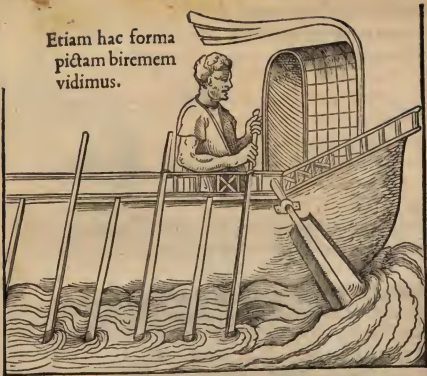 Etiam hac forma
pictam biremem
vidimus.